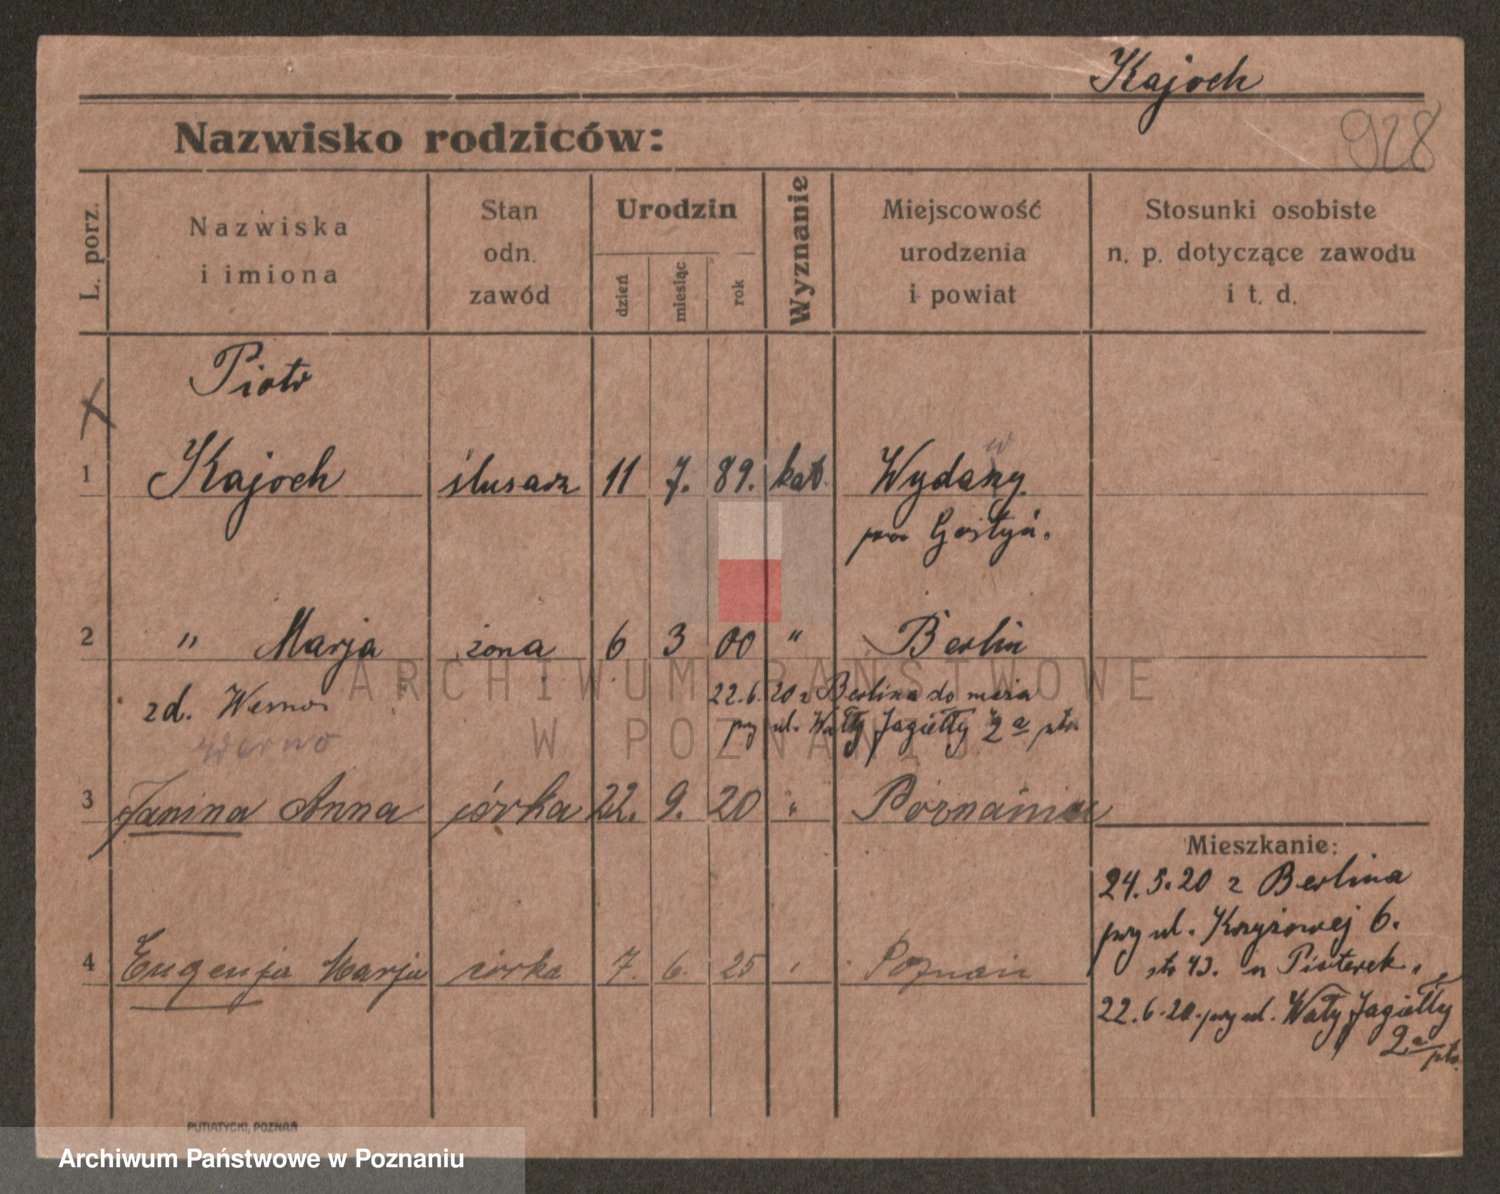 Kajoch
928
Nazwisko rodziców:
L. porz.
Nazwiska
i imiona
Stan
odn.
zawód
Urodzin
dzień
miesiąc
rok
Wyznanie
Miejscowość
urodzenia
i powiat
Stosunki osobiste
n. p. dotyczące zawodu
i t. d.
Piotr
1 Kajoch ślusarz 11 7. 89. kat. Wydawy
pow Gostyń.
2 " Marja żona 6 3 00 " Berlin
zd. Werno
Werno
22.6.20 z Berlina do męża
przy ul. Wały Jagiełły 2a ptr.
3 Janina Anna córka 22. 9. 20 " Poznań
4 Eugenja Marja córka 7. 6. 25 " Poznań
Mieszkanie:
24.5.20 z Berlina
przy ul. Krzyżowej 6.
u Piaterek.
22.6.20. przy ul. Wały Jagiełły
2a ptr.
PUTIATYCKI, POZNAŃ
ARCHIWUM PAŃSTWOWE
W POZNANIU
Archiwum Państwowe w Poznaniu